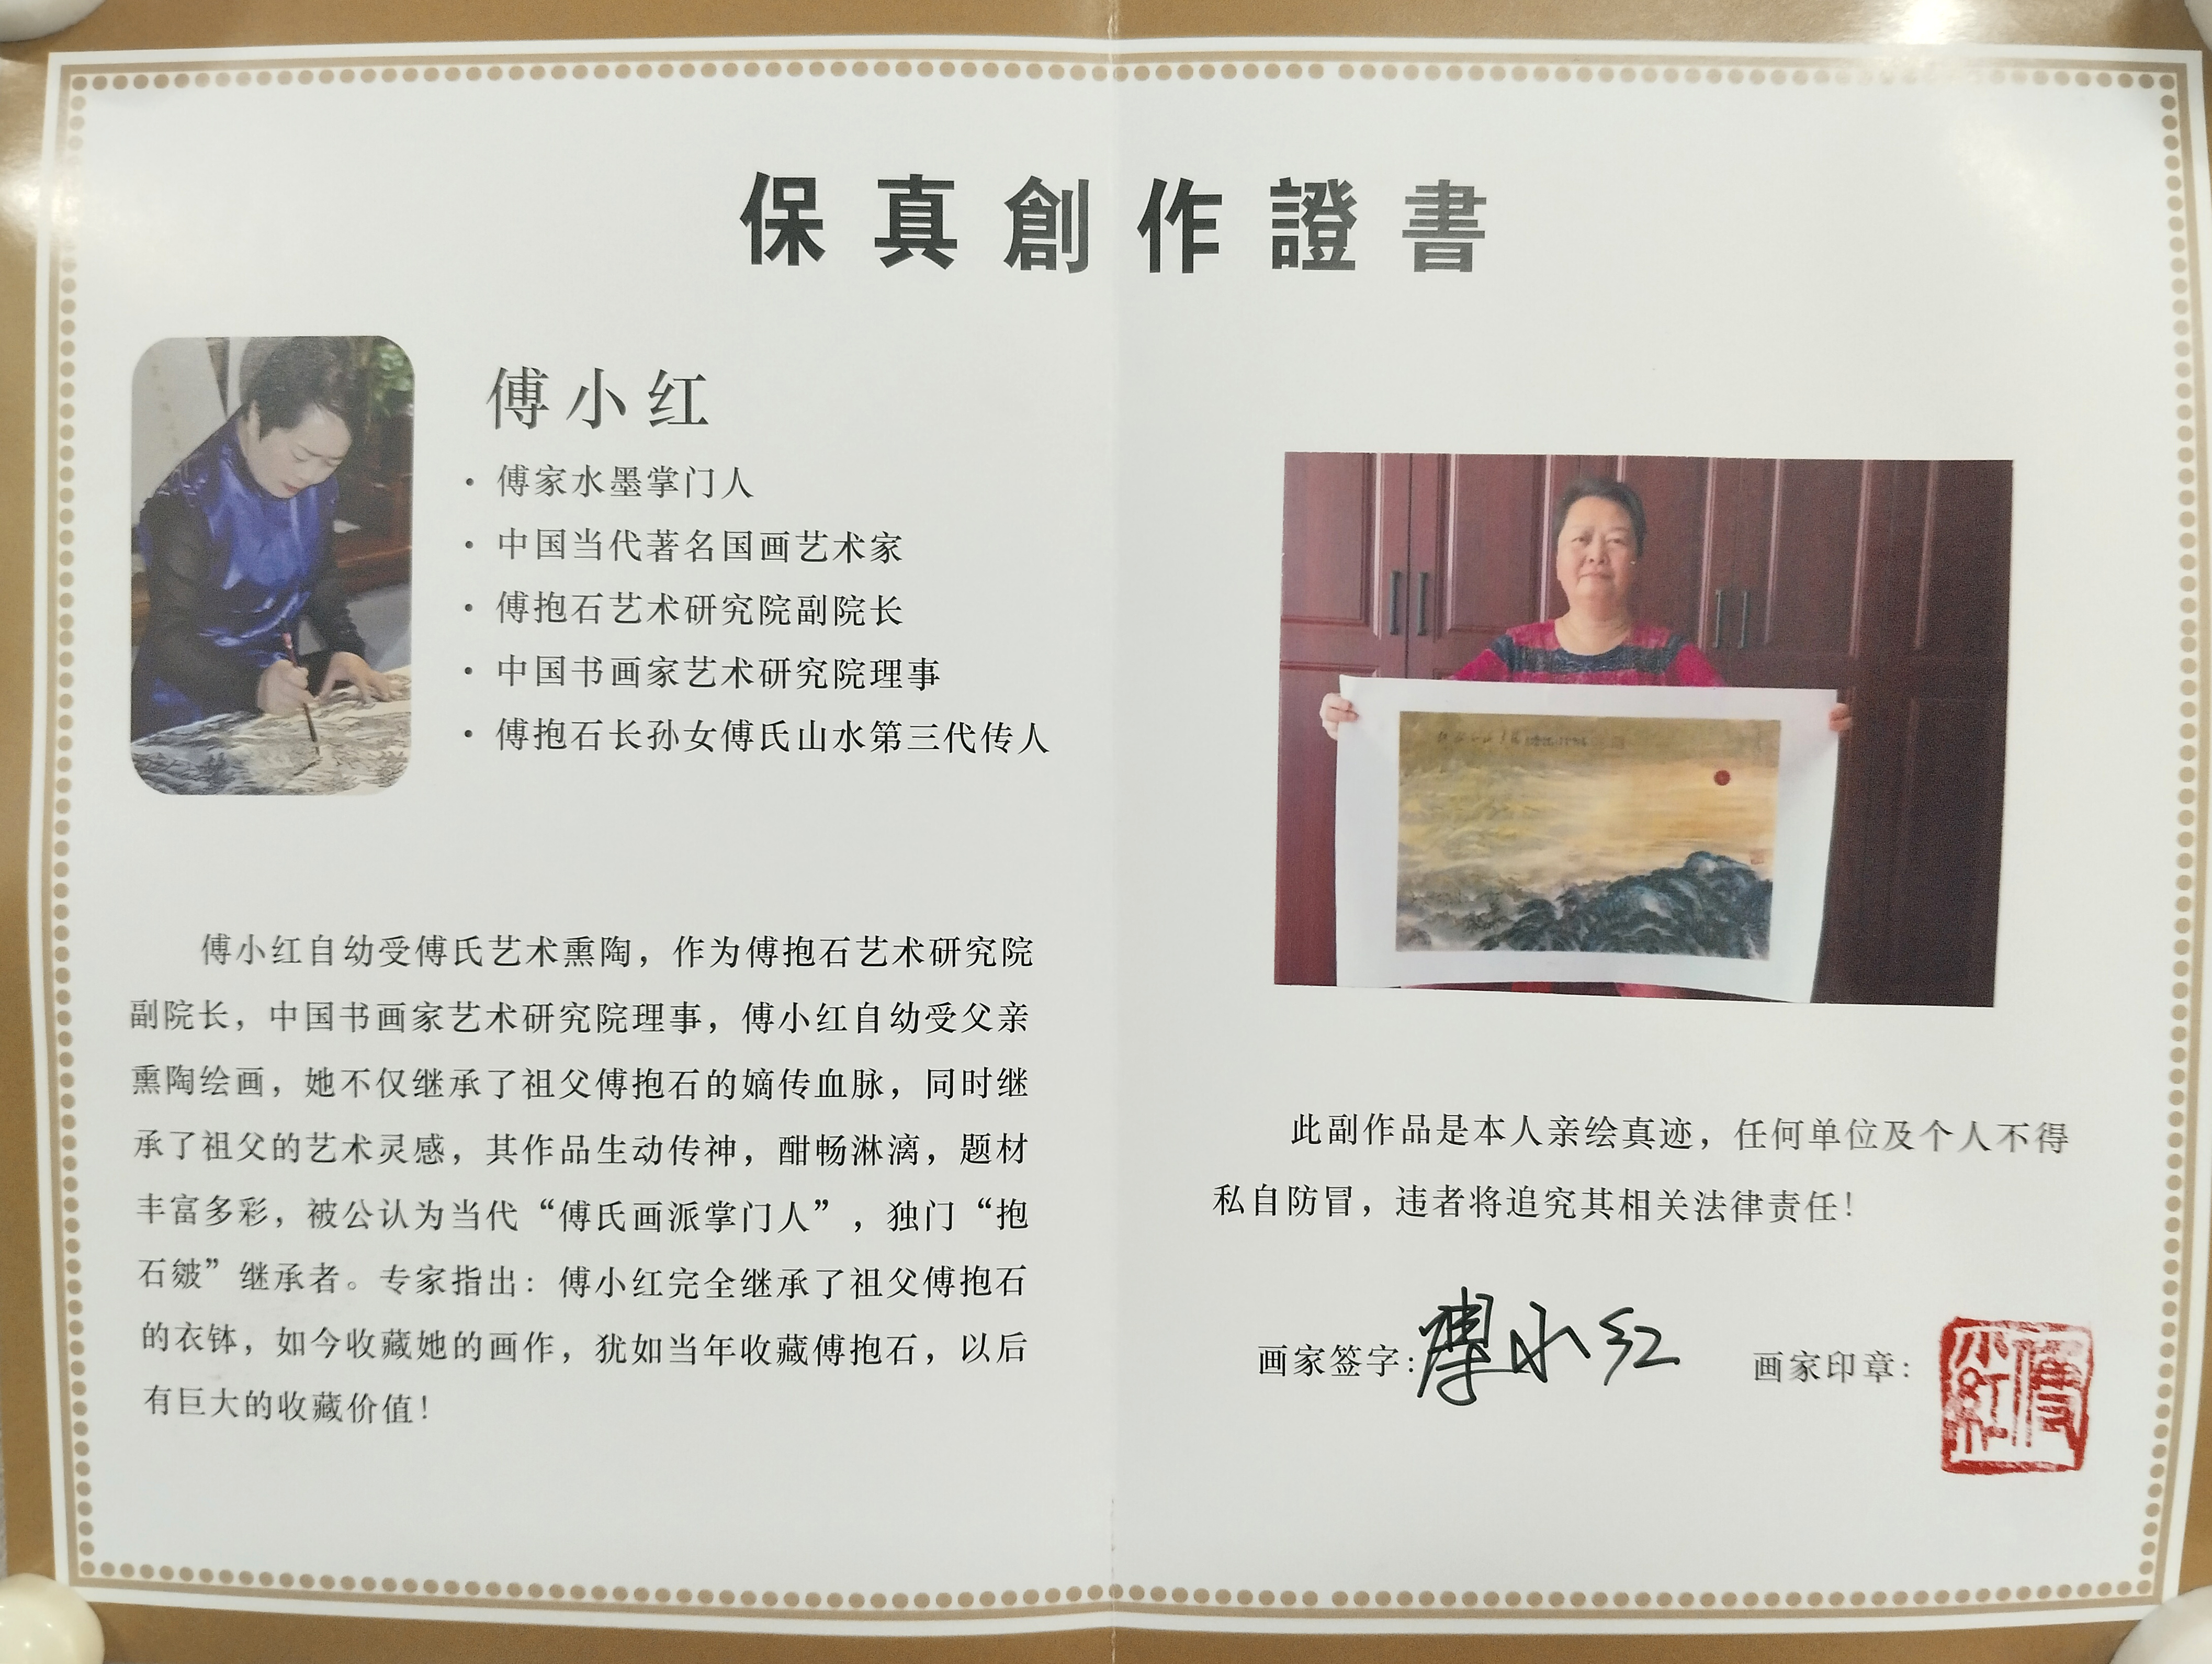 保真創作證書
傅小红
· 傅家水墨掌门人
· 中国当代著名国画艺术家
· 傅抱石艺术研究院副院长
· 中国书画家艺术研究院理事
· 傅抱石长孙女傅氏山水第三代传人
傅小红自幼受傅氏艺术熏陶，作为傅抱石艺术研究院
副院长，中国书画家艺术研究院理事，傅小红自幼受父亲
熏陶绘画，她不仅继承了祖父傅抱石的嫡传血脉，同时继
承了祖父的艺术灵感，其作品生动传神，酣畅淋漓，题材
丰富多彩，被公认为当代“傅氏画派掌门人”，独门“抱
石皴”继承者。专家指出：傅小红完全继承了祖父傅抱石
的衣钵，如今收藏她的画作，犹如当年收藏傅抱石，以后
有巨大的收藏价值！
此副作品是本人亲绘真迹，任何单位及个人不得
私自防冒，违者将追究其相关法律责任！
画家签字：傅小红 画家印章：
傅
小红